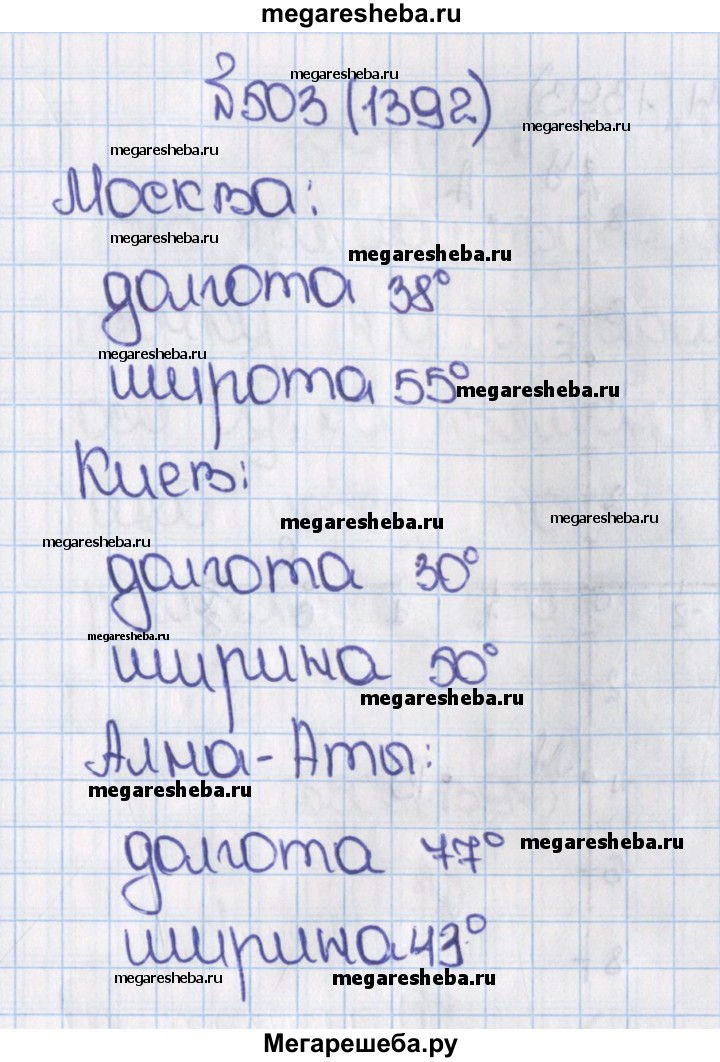 megaresheba.ru
megaresheba.ru
№503 (1392)
megaresheba.ru
megaresheba.ru
Москва:
megaresheba.ru
megaresheba.ru
долгота 38°
megaresheba.ru
широта 55°
megaresheba.ru
Киев:
megaresheba.ru
megaresheba.ru
megaresheba.ru
долгота 30°
megaresheba.ru
ширина 50°
megaresheba.ru
Алма-Аты:
megaresheba.ru
долгота 77°
megaresheba.ru
ширина 43°
megaresheba.ru
megaresheba.ru
Мегарешеба.ру